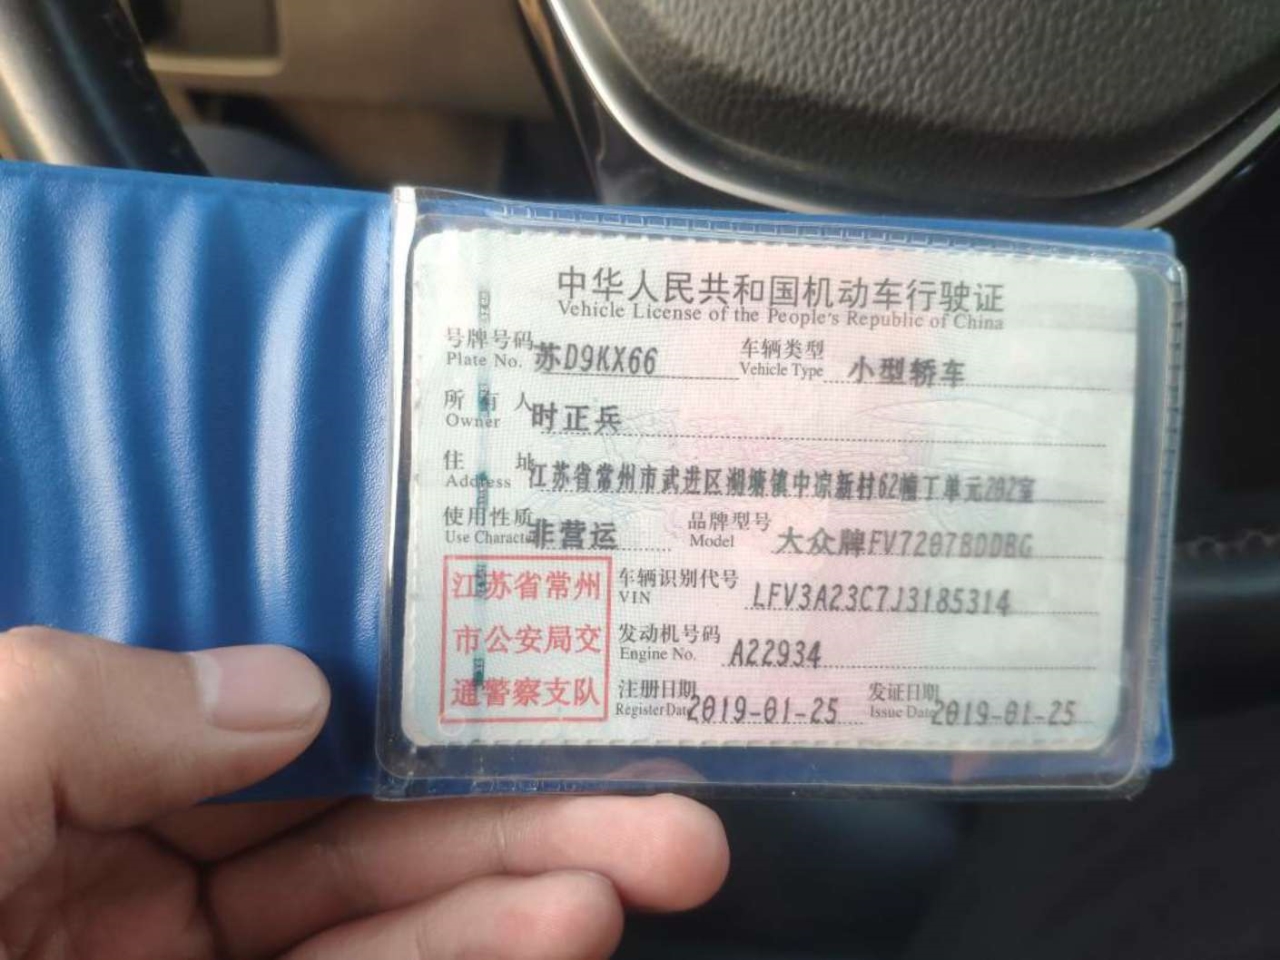 中华人民共和国机动车行驶证
Vehicle License of the People's Republic of China
号牌号码 苏D9KX66 车辆类型 小型轿车
Plate No. Vehicle Type
所有人 时正兵
Owner
住址 江苏省常州市武进区湖塘镇中凉新村62幢丁单元202室
Address
使用性质 非营运 品牌型号 大众牌FV7207BDDBG
Use Characte Model
江苏省常州 车辆识别代号 LFV3A23C7J3185314
VIN
市公安局交 发动机号码 A22934
Engine No.
通警察支队 注册日期 2019-01-25 发证日期 2019-01-25
Register Dat Issue Dat